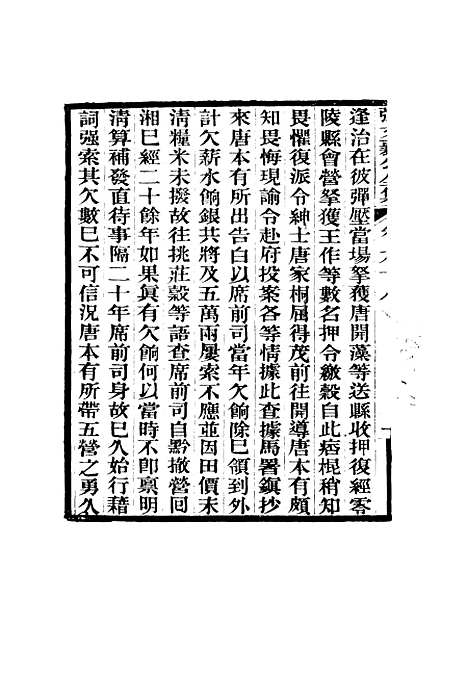 逢治在彼彈壓當場拏獲唐開藻等送縣收押復經零
陵縣會營拏獲王作等數名押令繳穀自此痞棍稍知
畏懼復派令紳士唐家桐屈得茂前往開導唐本有頗
知畏悔現諭令赴府投案各等情據此查據馬署鎮抄
來唐本有所出告白以席前司當年欠餉除已領到外
計欠薪水餉銀共將及五萬兩屢索不應並因田價未
清糧米未撥故往挑莊穀等語查席前司自黔撤營回
湘已經二十餘年如果眞有欠餉何以當時不卽稟明
清算補發直待事隔二十年席前司身故已久始行藉
詞强索其欠數已不可信況唐本有所帶五營之勇久